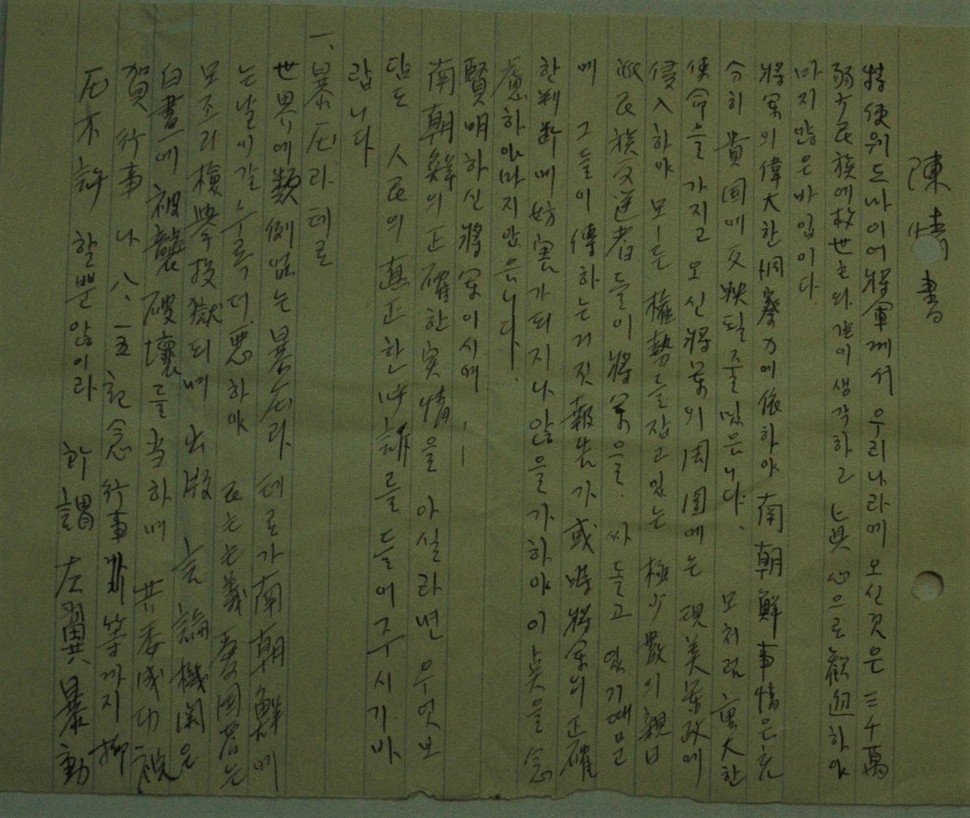 陳情書
特使워드마이어將軍께서 우리나라에 오신것은 三千萬
弱少民族에 救世主와 같이 생각하고 眞心으로 歡迎하야
마지않은바입이다.
將軍의 偉大한 洞察力에 依하야 南朝鮮事情은 充
分히 貴国에 反映될줄믿습니다. 모처럼 重大한
使命을 가지고 오신 將軍의 周圍에는 現美軍政에
侵入하야 모ー든 權勢를 잡고있는 極少數의 親日
派民族反逆者들이 將軍을 싸돌고 있기때문
에 그들이 傳하는 거짓 報告가 或時 將軍의 正確
한 判斷에 妨害가 되지나 않을가 하야 이 点을 念
慮하야 마지안습니다.
賢明하신 將軍이시에 ――
南朝鮮의 正確한 実情을 아실라면 무엇보
담도 人民의 眞正한 呼訴를 들어주시기바
랍니다
一. 暴圧과 테로
世界에 類例없는 暴圧과 테로가 南朝鮮에
는 날이갈수록 더 悪하야 民主主義愛国者는
모조리 檢擧投獄되며 出版 言論機関은
白晝에 被襲破壞를 当하며 共委成功祝
賀行事나 八.一五記念行事 等까지 抑
圧不許 할뿐않이라 所謂 左翼暴動